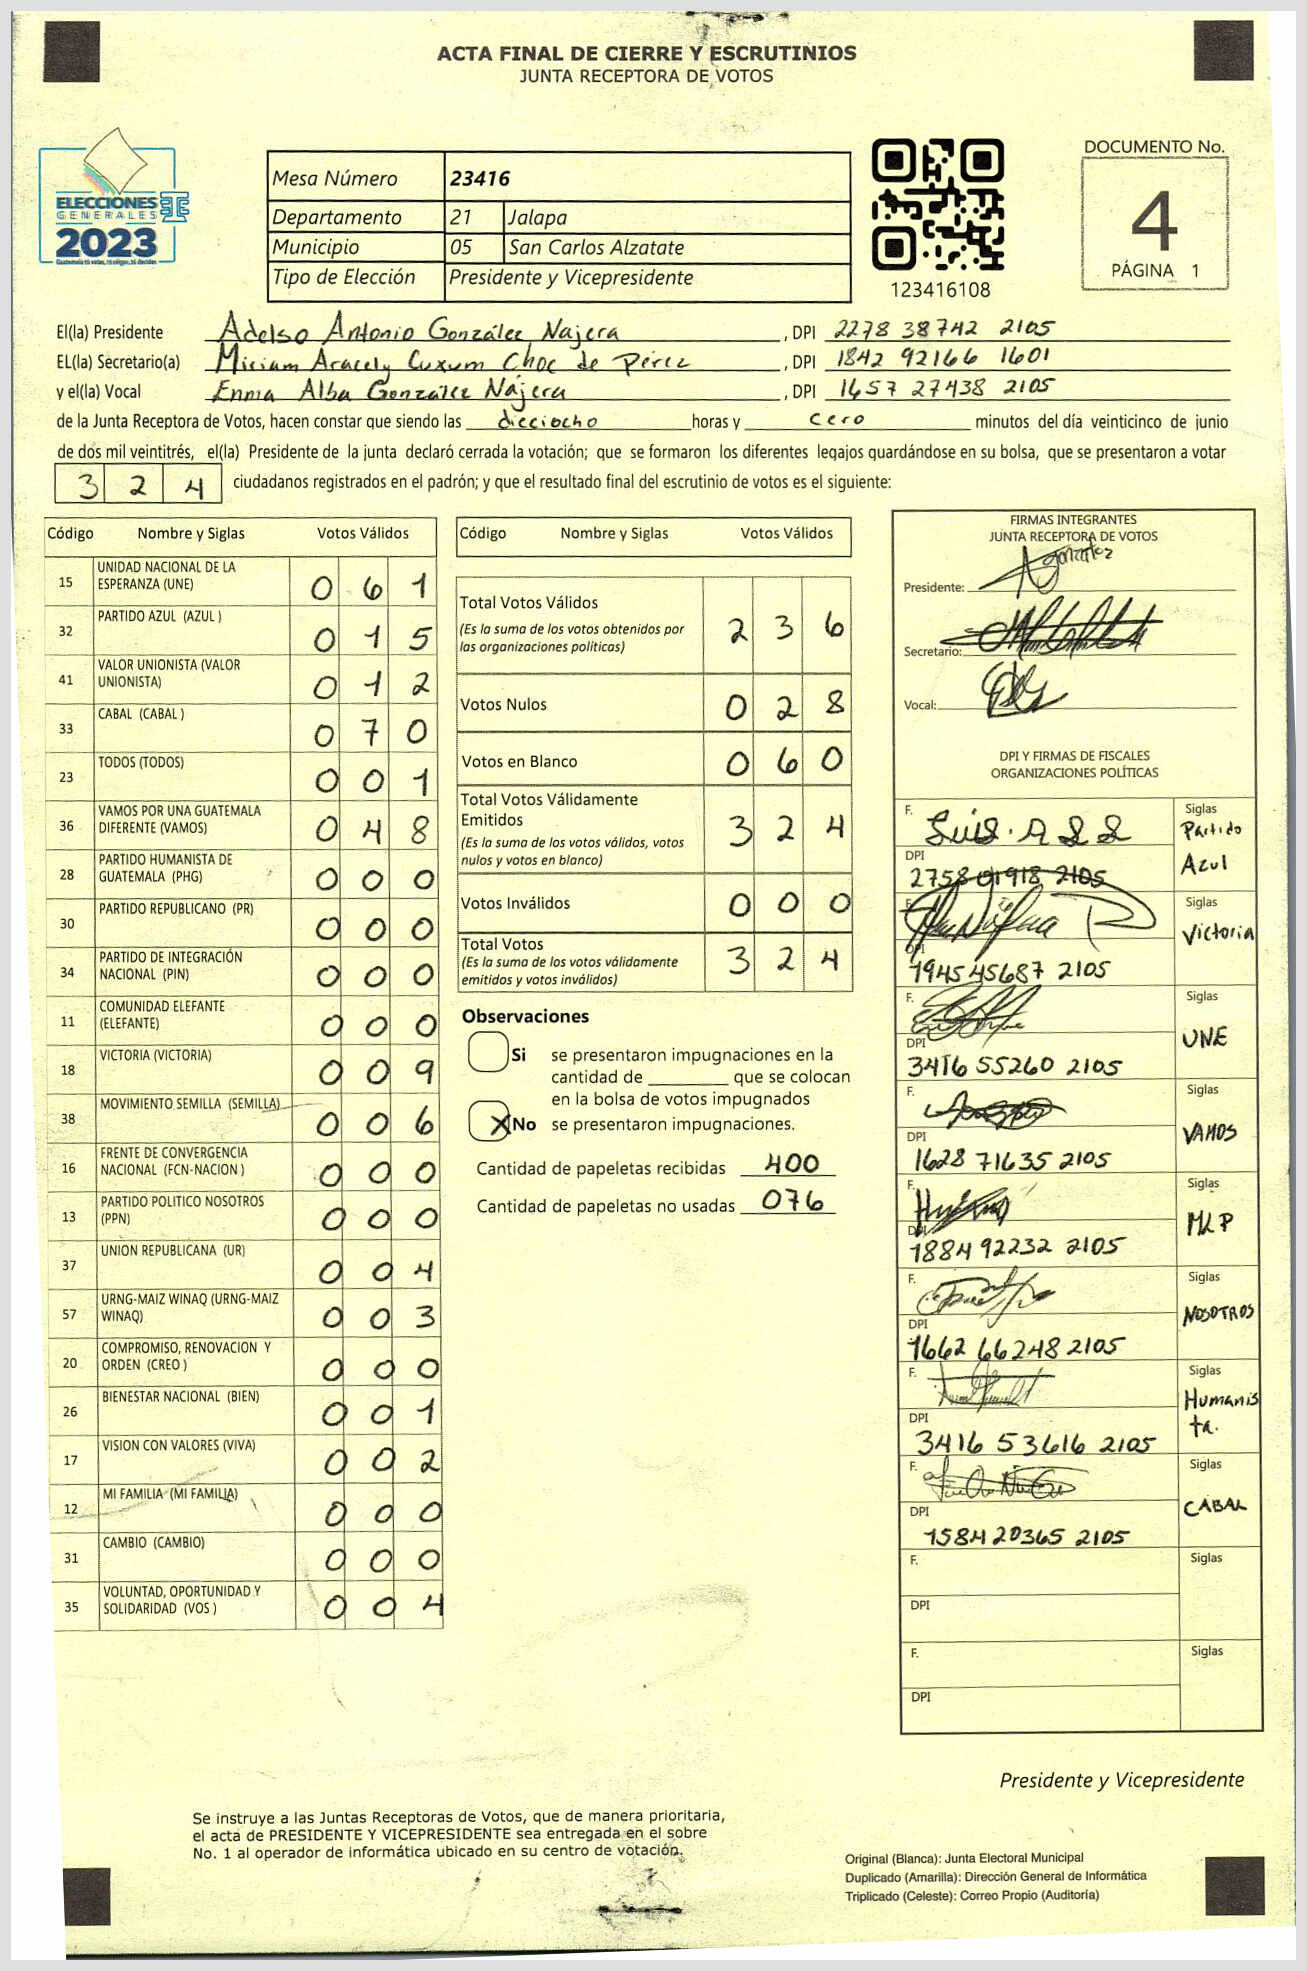 ACTA FINAL DE CIERRE Y ESCRUTINIOS
JUNTA RECEPTORA DE VOTOS
ELECCIONES
GENERALES
2023
Mesa Número 23416
Departamento 21 Jalapa
Municipio 05 San Carlos Alzatate
Tipo de Elección Presidente y Vicepresidente
123416108
DOCUMENTO No.
4
PÁGINA 1
El(la) Presidente Adelso Antonio González Najera, DPI 2278 38742 2105
EL(la) Secretario(a) Miriam Aracely Cuxum Choc de Pérez, DPI 1842 92166 1601
y el(la) Vocal Enma Alba González Nájera, DPI 1657 27438 2105
de la Junta Receptora de Votos, hacen constar que siendo las diecciocho horas y cero minutos del día veinticinco de junio
de dos mil veintitrés, el(la) Presidente de la junta declaró cerrada la votación; que se formaron los diferentes legajos guardándose en su bolsa, que se presentaron a votar
3 2 4 ciudadanos registrados en el padrón; y que el resultado final del escrutinio de votos es el siguiente:
Código Nombre y Siglas Votos Válidos
15 UNIDAD NACIONAL DE LA ESPERANZA (UNE) 0 6 1
32 PARTIDO AZUL (AZUL ) 0 1 5
41 VALOR UNIONISTA (VALOR UNIONISTA) 0 1 2
33 CABAL (CABAL ) 0 7 0
23 TODOS (TODOS) 0 0 1
36 VAMOS POR UNA GUATEMALA DIFERENTE (VAMOS) 0 4 8
28 PARTIDO HUMANISTA DE GUATEMALA (PHG) 0 0 0
30 PARTIDO REPUBLICANO (PR) 0 0 0
34 PARTIDO DE INTEGRACIÓN NACIONAL (PIN) 0 0 0
11 COMUNIDAD ELEFANTE (ELEFANTE) 0 0 0
18 VICTORIA (VICTORIA) 0 0 9
38 MOVIMIENTO SEMILLA (SEMILLA) 0 0 6
16 FRENTE DE CONVERGENCIA NACIONAL (FCN-NACION ) 0 0 0
13 PARTIDO POLITICO NOSOTROS (PPN) 0 0 0
37 UNION REPUBLICANA (UR) 0 0 4
57 URNG-MAIZ WINAQ (URNG-MAIZ WINAQ) 0 0 3
20 COMPROMISO, RENOVACION Y ORDEN (CREO ) 0 0 0
26 BIENESTAR NACIONAL (BIEN) 0 0 1
17 VISION CON VALORES (VIVA) 0 0 2
12 MI FAMILIA (MI FAMILIA) 0 0 0
31 CAMBIO (CAMBIO) 0 0 0
35 VOLUNTAD, OPORTUNIDAD Y SOLIDARIDAD (VOS ) 0 0 4
Código Nombre y Siglas Votos Válidos
Total Votos Válidos 2 3 6
(Es la suma de los votos obtenidos por
las organizaciones políticas)
Votos Nulos 0 2 8
Votos en Blanco 0 6 0
Total Votos Válidamente
Emitidos 3 2 4
(Es la suma de los votos válidos, votos
nulos y votos en blanco)
Votos Inválidos 0 0 0
Total Votos 3 2 4
(Es la suma de los votos válidamente
emitidos y votos inválidos)
Observaciones
Si se presentaron impugnaciones en la
cantidad de ________ que se colocan
en la bolsa de votos impugnados
X No se presentaron impugnaciones.
Cantidad de papeletas recibidas 400
Cantidad de papeletas no usadas 076
FIRMAS INTEGRANTES
JUNTA RECEPTORA DE VOTOS
Presidente:
Secretario:
Vocal:
DPI Y FIRMAS DE FISCALES
ORGANIZACIONES POLÍTICAS
F. Siglas Partido Azul
DPI 2758 01918 2105
F. Siglas Victoria
DPI 1945 45687 2105
F. Siglas UNE
DPI 3416 55260 2105
F. Siglas VAMOS
DPI 1628 71635 2105
F. Siglas MLP
DPI 1884 92232 2105
F. Siglas NOSOTROS
DPI 1662 66248 2105
F. Siglas Humanis ta.
DPI 3416 53616 2105
F. Siglas CABAL
DPI 1584 20365 2105
F. Siglas
DPI
F. Siglas
DPI
Presidente y Vicepresidente
Se instruye a las Juntas Receptoras de Votos, que de manera prioritaria,
el acta de PRESIDENTE Y VICEPRESIDENTE sea entregada en el sobre
No. 1 al operador de informática ubicado en su centro de votación.
Original (Blanca): Junta Electoral Municipal
Duplicado (Amarilla): Dirección General de Informática
Triplicado (Celeste): Correo Propio (Auditoría)